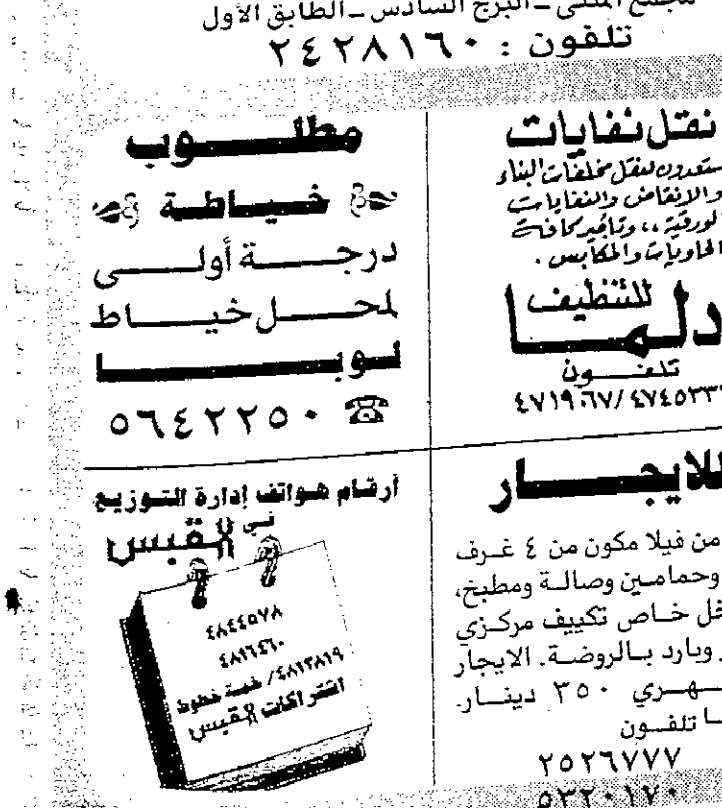 مجمع المثنى ـ البرج السادس ـ الطابق الأول
تلفون : ٢٤٢٨١٦٠
نقل نفايات
مستعدون لنقل مخلفات البناء
والانقاض والنفايات
الورقية ،، وتأجير كافة
الحاويات والمكابس .
للتنظيف
دلما
تلفـــون
٤٧١٩٠٦٧/٤٧٤٥٣٣
مطلـــوب
خـيـاطـة
درجــــة أولــــى
لمحـــل خيـــاط
لوبـــــا
٥٦٤٢٢٥٠
للايجـــار
من فيلا مكون من ٤ غـرف
وحمامـين وصالـة ومطبخ،
خـاص تكييف مركـزي
وبارد بـالروضـة. الايجار
٣٥٠ دينـــار.
تلفـــون
٢٥٢٦٧٧٧
٥٣٢٠١٧٠
أرقـام هـواتف إدارة التـوزيـع
فـي القبس
٤٨٤٤٥٧٨
٤٨١٦٤٦٠
٤٨١٣٨١٩/ خمسة خطوط
اشتراكات القبس